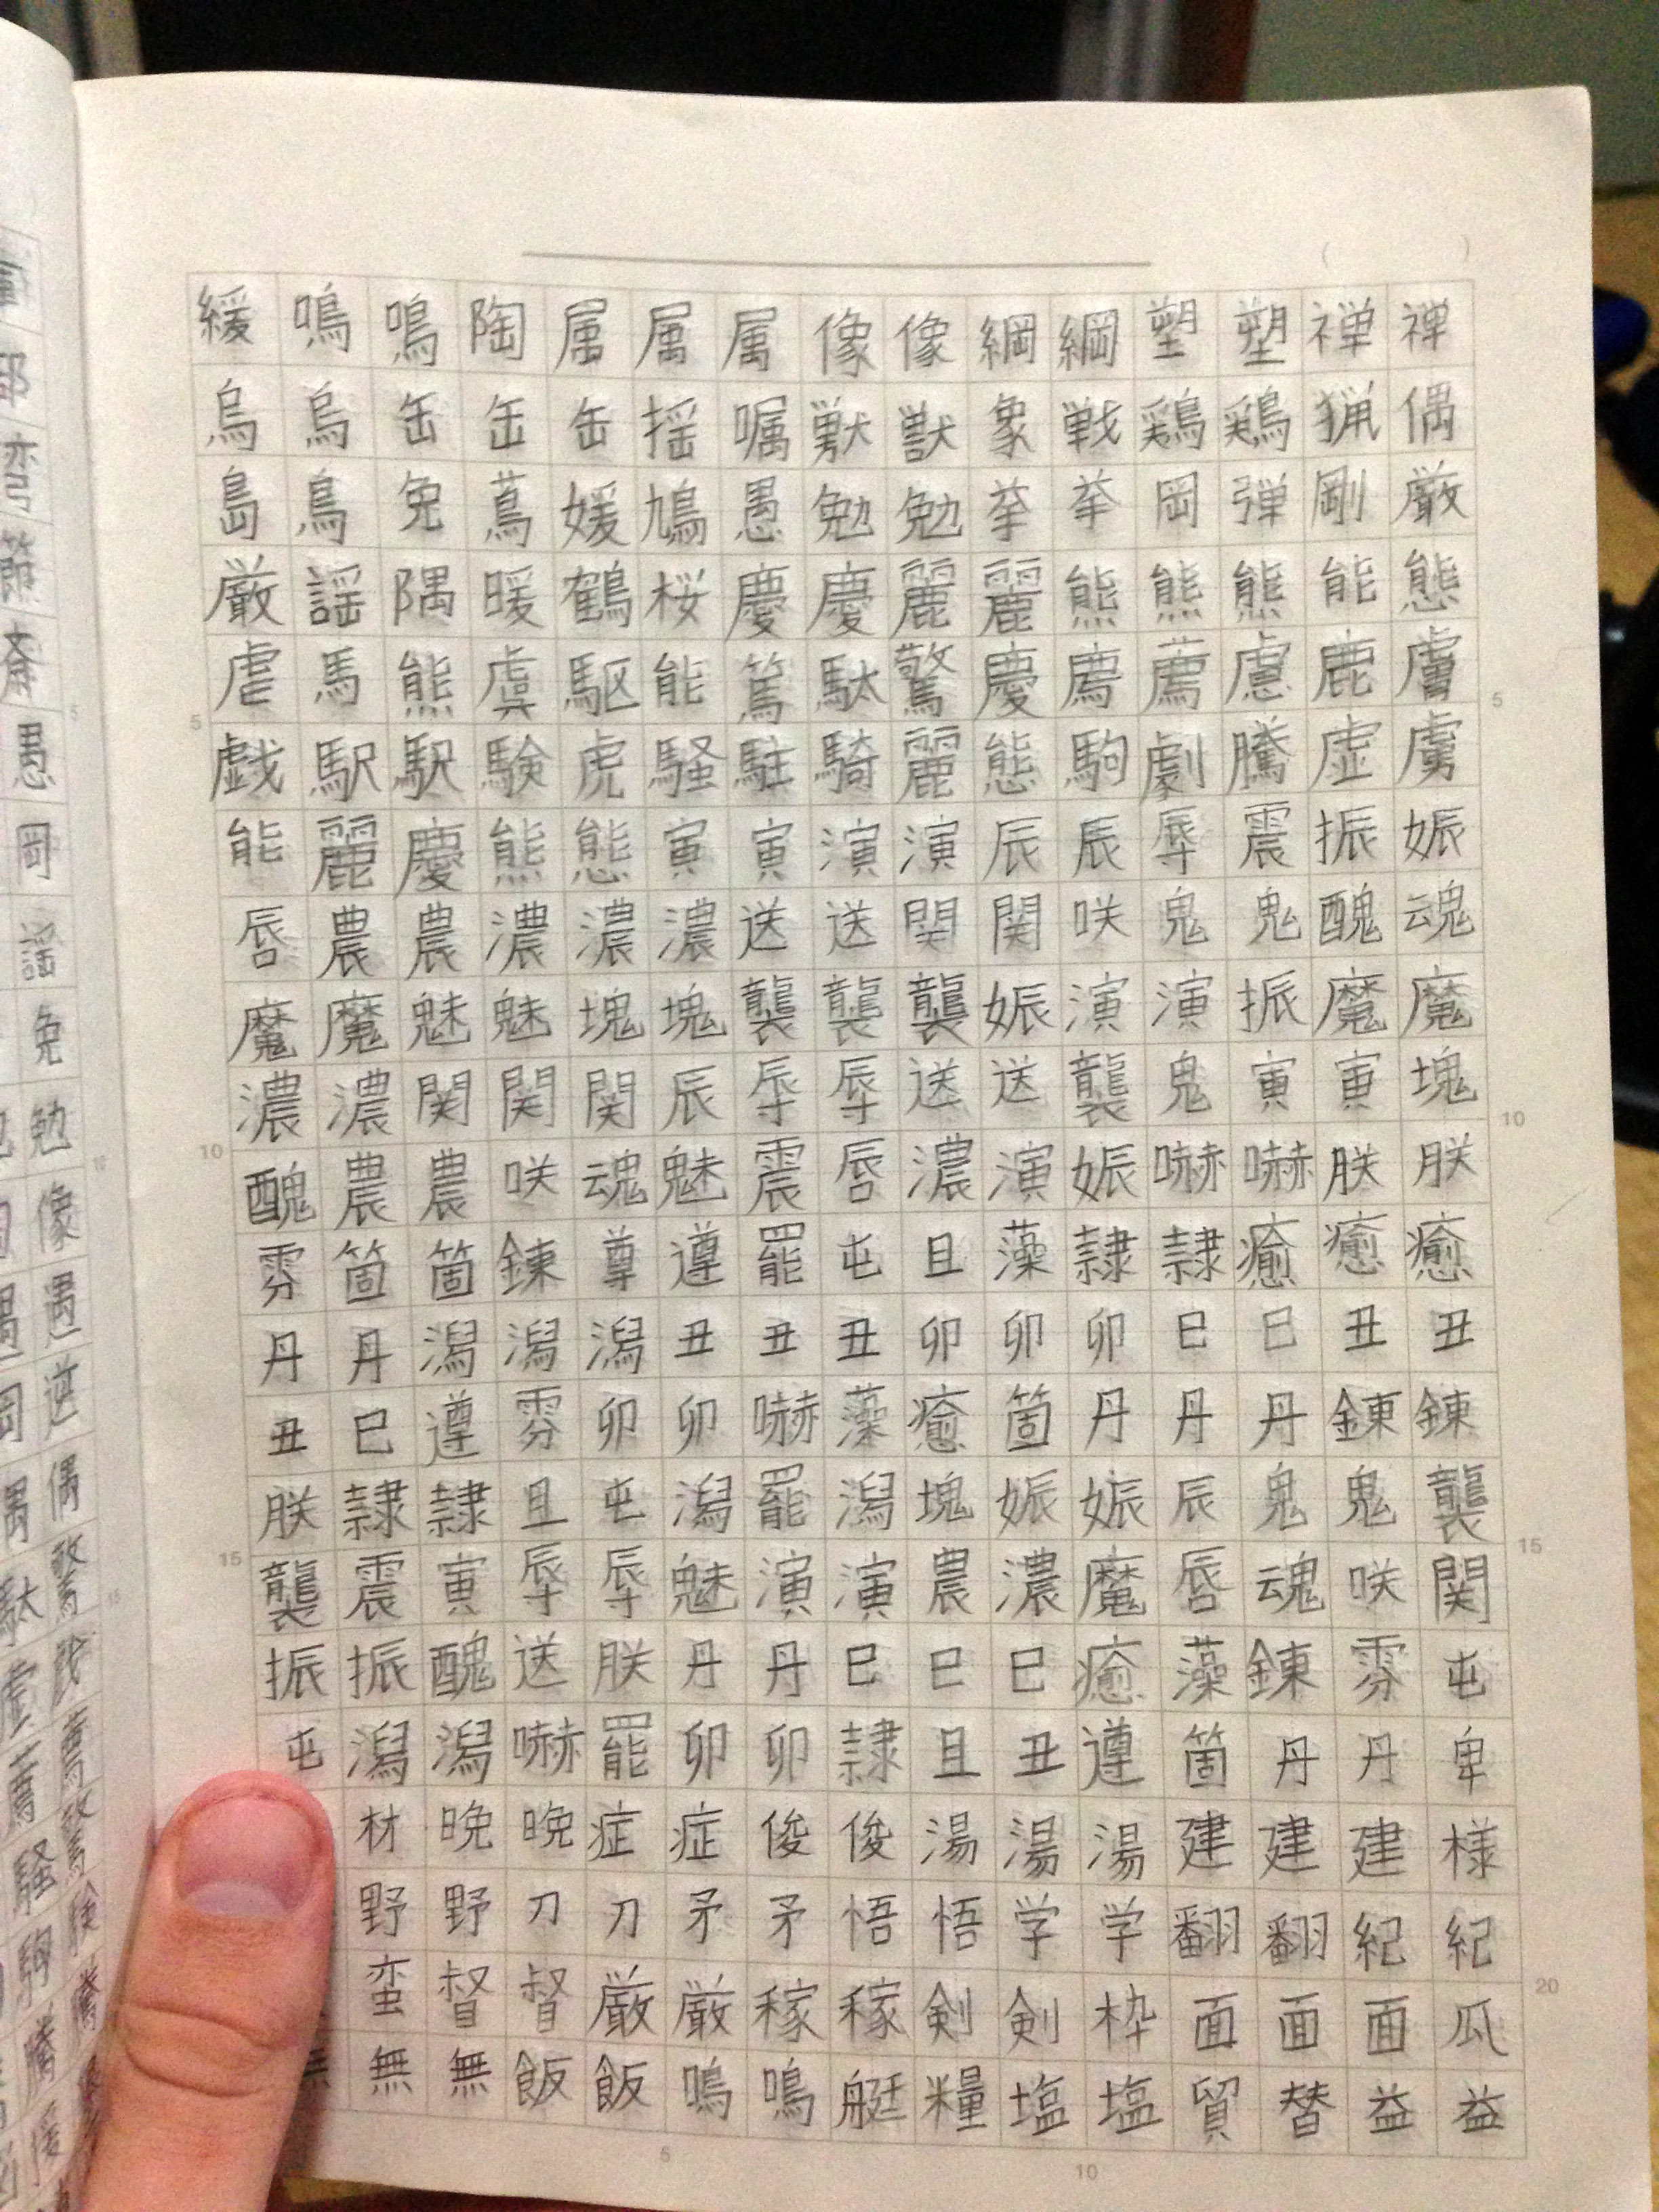 緩鳴鳴陶属属属像像綱綱塑塑禅禅
烏烏缶缶缶揺嘱獣獣象戦鶏鶏猟偶
島鳥免蔦媛鳩愚勉勉挙挙岡弾剛厳
厳謡隅暖鶴桜慶慶麗麗熊熊熊能態
虐馬熊虞駆能篤駄驚慶薦薦慮鹿膚
戯駅駅験虎騒駐騎麗態駒劇騰虚虜
能麗慶熊態寅寅演演辰辰辱震振娠
唇農農濃濃濃送送関関咲鬼鬼醜魂
魔魔魅魅塊塊襲襲襲娠演演振魔魔
濃濃関関関辰辱辱送送襲鬼寅寅塊
醜農農咲魂魅震唇濃演娠嚇嚇朕朕
雰箇箇錬尊遵罷屯且藻隷隷癒癒癒
丹丹潟潟潟丑丑丑卯卯卯巳巳丑丑
丑巳遵雰卯卯嚇藻癒箇丹丹丹錬錬
朕隷隷且屯潟罷潟塊娠娠辰鬼鬼襲
襲震寅辱辱魅演演農濃魔唇魂咲関
振振醜送朕丹丹巳巳巳癒藻錬雰屯
屯潟潟嚇罷卯卯隷且丑遵箇丹丹卑
材晩晩症症俊俊湯湯湯建建建様
野野刀刀矛矛悟悟学学翻翻紀紀
蛮督督厳厳稼稼剣剣枠面面面瓜
無無無飯飯鳴鳴艇糧塩塩貿替益益